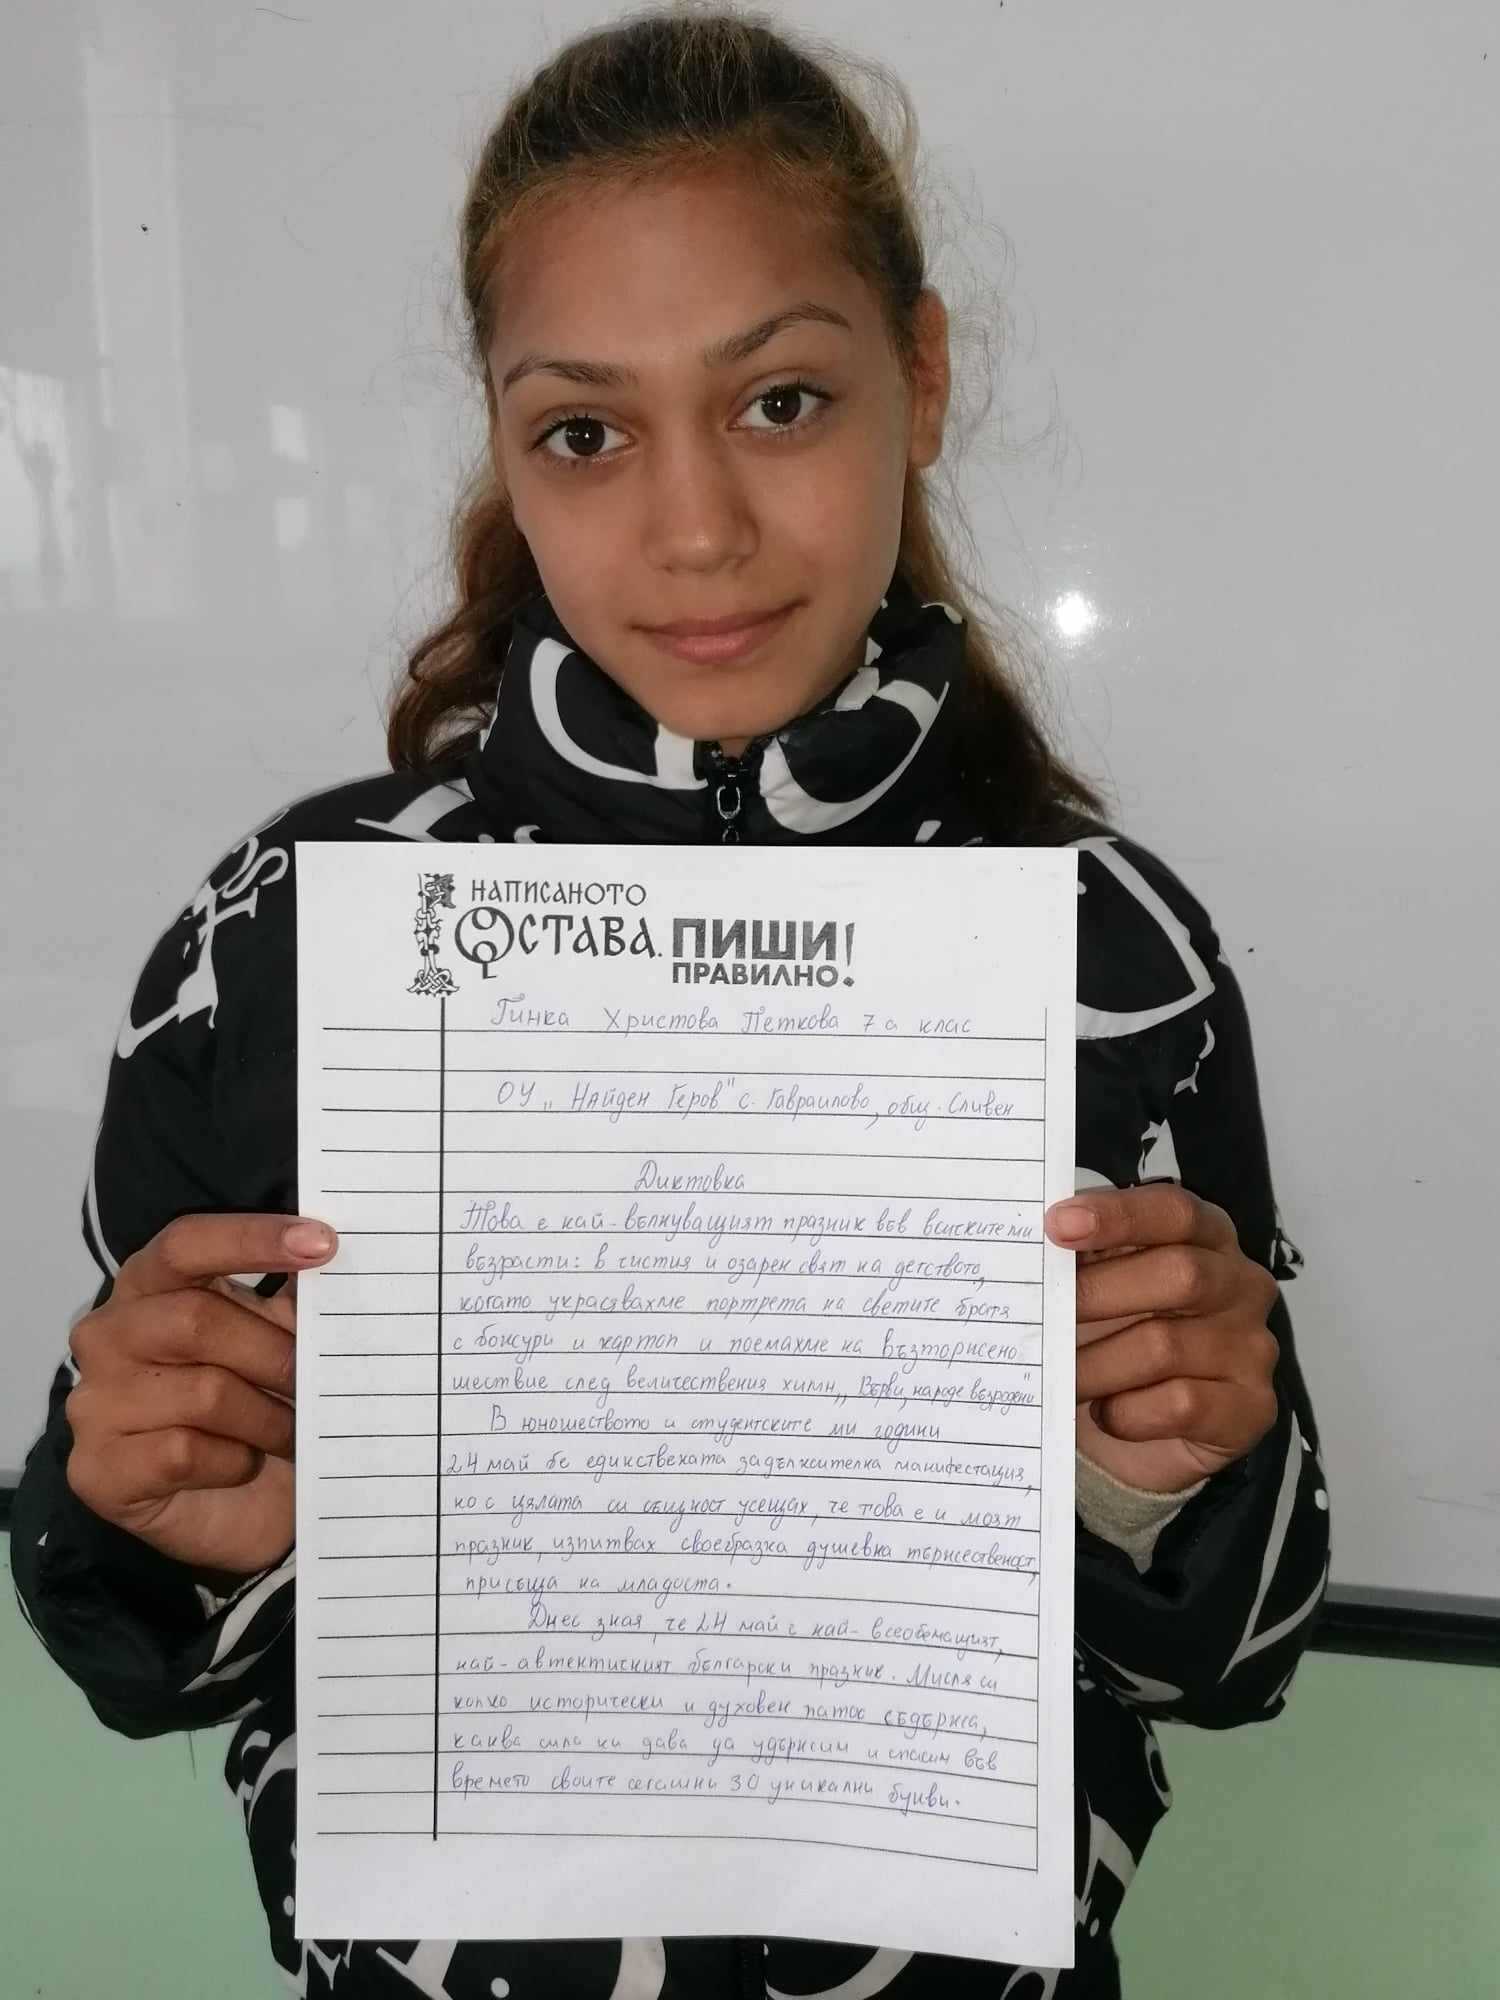 НАПИСАНОТО
ОСТАВА. ПИШИ
ПРАВИЛНО!
Гинка Христова Петкова 7 а клас
ОУ „Найден Геров" с. Гавраилово, общ. Сливен
Диктовка
Това е най-вълнуващият празник във всичките ми
възрасти: в чистия и озарен свят на детството,
когато украсявахме портрета на светите братя
с божури и картоп и поемахме на възторжено
шествие след величествения химн „Върви, народе възродени"
В юношеството и студентските ми години
24 май бе единствената задължителна манифестация,
но с цялата си същност усещах, че това е и моят
празник, изпитвах своеобразна душевна тържественост,
присъща на младоста.
Днес зная, че 24 май е най-всеобемащият,
най-автентичният български празник. Мисля си
колко исторически и духовен патос съдържа,
каква сила ни дава да удържим и спасим във
времето своите сегашни 30 уникални букви.